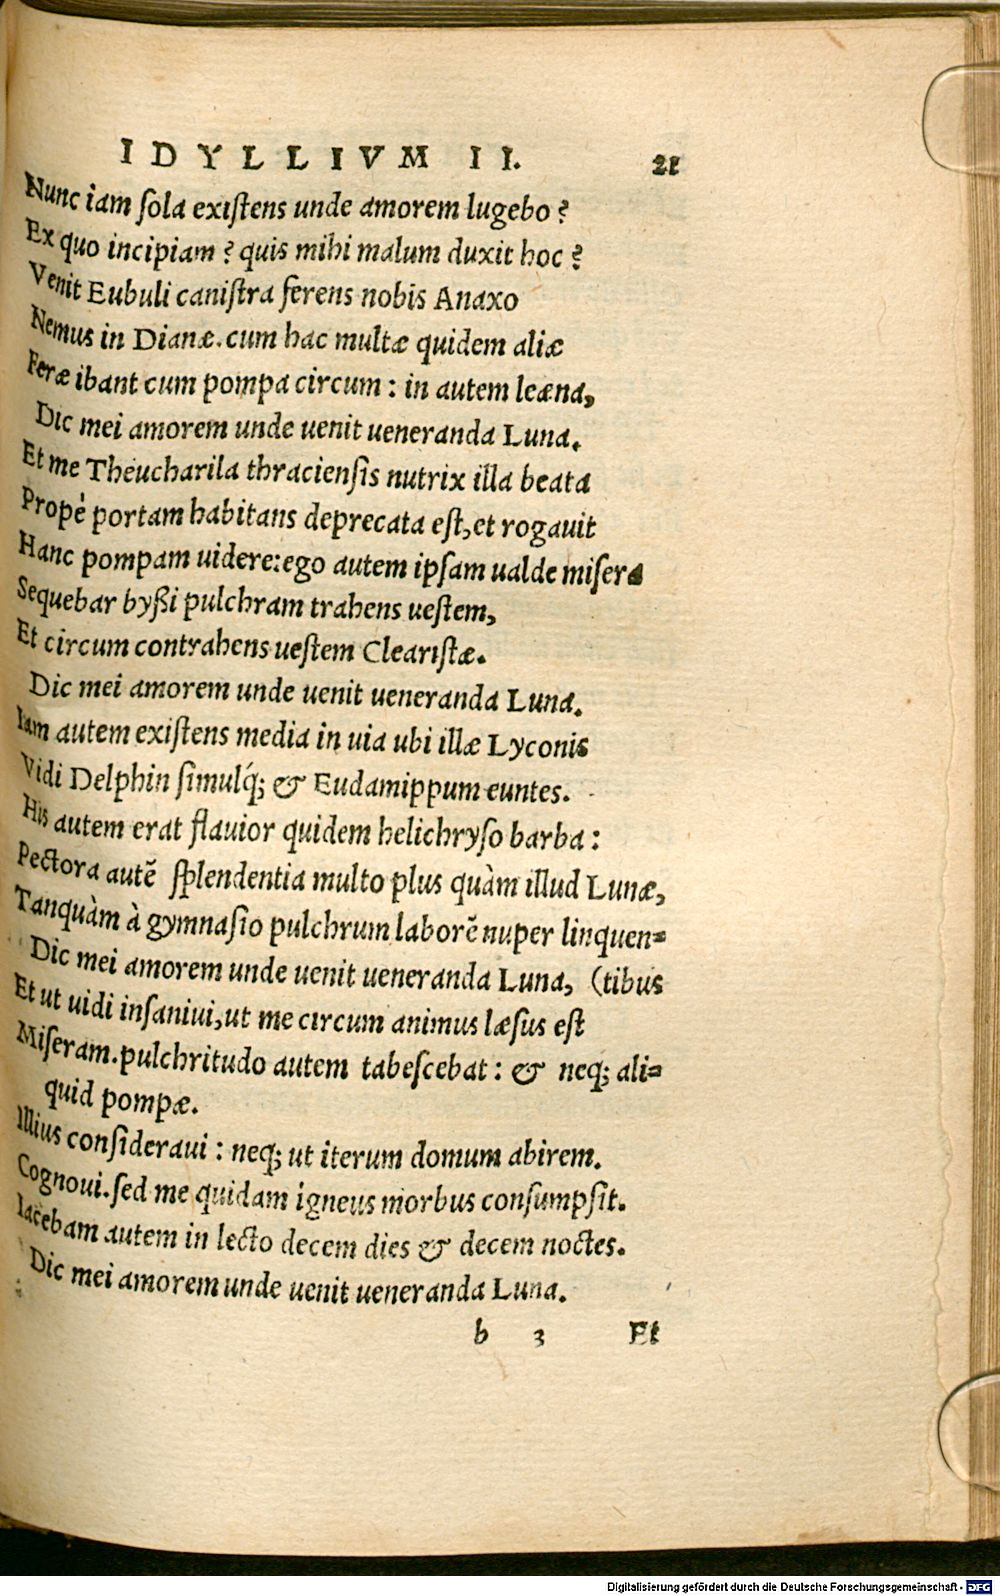 IDYLLIVM II. 21
Nunc iam ſola exiſtens unde amorem lugebo?
Ex quo incipiam? quis mihi malum duxit hoc?
Venit Eubuli caniſtra ferens nobis Anaxo
Nemus in Dianæ. cum hac multæ quidem aliæ
Feræ ibant cum pompa circum: in autem leæna,
Dic mei amorem unde uenit ueneranda Luna.
Et me Theucharila thracienſis nutrix illa beata
Propè portam habitans deprecata eſt, et rogauit
Hanc pompam uidere: ego autem ipſam ualde miſera
Sequebar byßi pulchram trahens ueſtem,
Et circum contrahens ueſtem Cleariſtæ.
Dic mei amorem unde uenit ueneranda Luna.
Iam autem exiſtens media in uia ubi illæ Lyconis
Vidi Delphin ſimulq́; & Eudamippum euntes.
His autem erat flauior quidem helichryſo barba:
Pectora autē ſplendentia multo plus quàm illud Lunæ,
Tanquàm à gymnaſio pulchrum laborē nuper linquen=
Dic mei amorem unde uenit ueneranda Luna, (tibus
Et ut uidi inſaniui, ut me circum animus læſus eſt
Miſeram. pulchritudo autem tabeſcebat: & neq; ali=
quid pompæ.
Illius conſideraui: neq; ut iterum domum abirem.
Cognoui. ſed me quidam igneus morbus conſumpſit.
Iacebam autem in lecto decem dies & decem noctes.
Dic mei amorem unde uenit ueneranda Luna.
b 3 Et
Digitalisierung gefördert durch die Deutsche Forschungsgemeinschaft - DFG